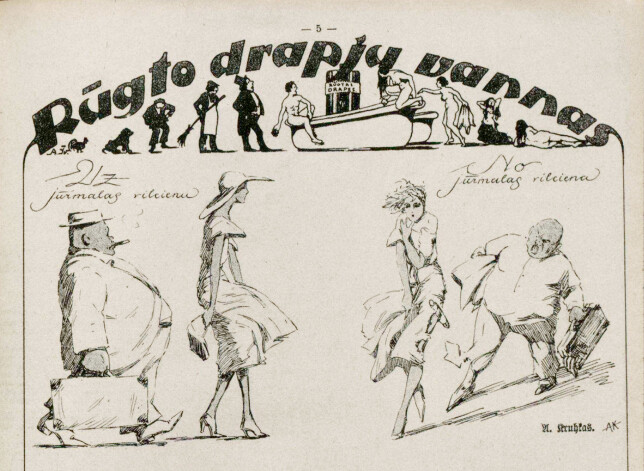 — 5 —
Rūgto drapju vannas
RŪGTAS
DRAPES
Uz
jūrmalas vilcienu
No
jūrmalas vilciena
A. Kruhkas. AK